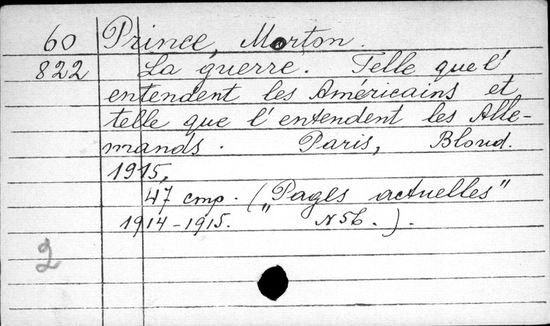 60 Prince, Morton.
822 La guerre. Telle que l'
entendent les Américains et
telle que l'entendent les Alle-
mands. Paris, Bloud.
1915,
47 cmp. („Pages actuelles”
1914-1915. N 56.).
2